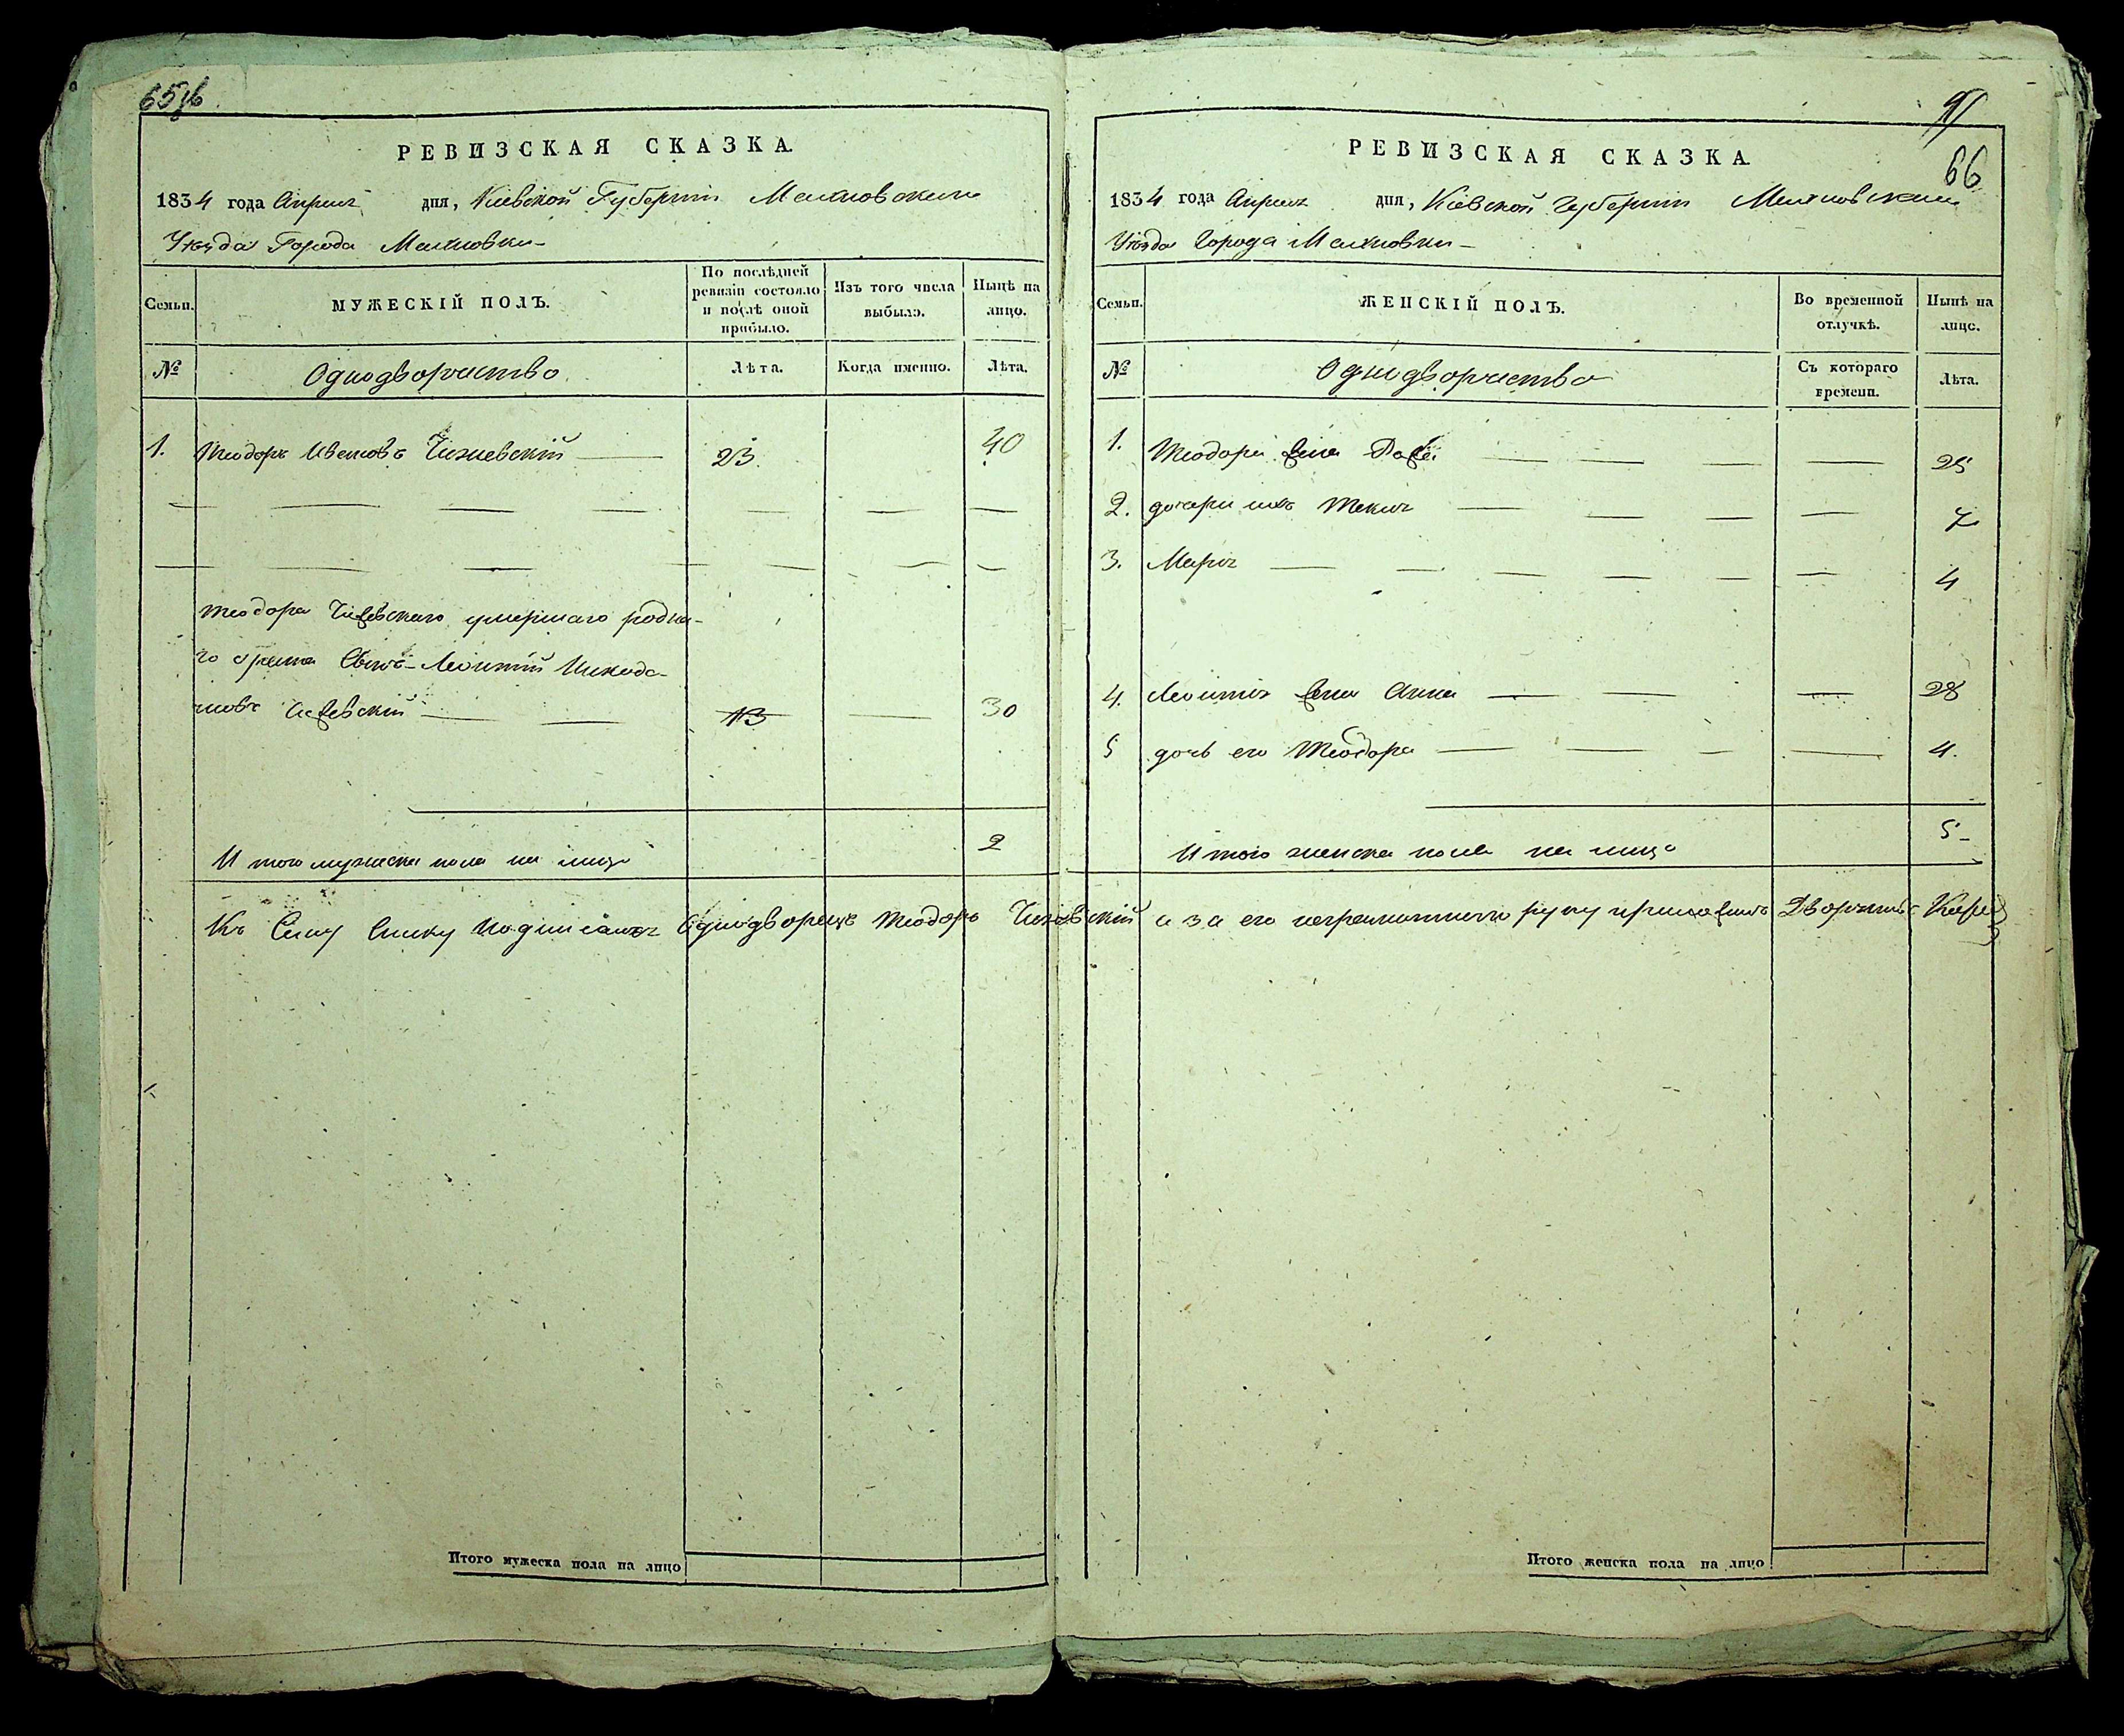 65 об
РЕВИЗСКАЯ СКАЗКА.
1834 года Апреля дня, Киевской Губернии Махновского
Уѣзда Города Махновки
Семьи.
МУЖЕСКІЙ ПОЛЪ.
По послѣдней ревизіи состояло и послѣ оной прибыло.
Изъ того числа выбыло.
Нынѣ на лицо.
№
Однодворчество
Лѣта.
Когда именно.
Лѣта.
1. Теодоръ Ивановъ Чижевскій 23. 40
Теодора Чижевскаго умершаго родна-
го брата Сынъ Леонтій Никоди-
мовъ Чижевскій 13 30
Итого мужеска пола на лицо 2
Къ Сему Списку подписался Однодворецъ Теодоръ Чижевскій а за его неграмотного руку приложилъ Дворянинъ
Итого мужеска пола на лицо
91
66
РЕВИЗСКАЯ СКАЗКА
1834 года Апреля дня, Кіевской Губерніи Махновскаго
Уѣзда Города Махновки
Семьи.
ЖЕНСКІЙ ПОЛЪ.
Во временной отлучкѣ.
Нынѣ на лицо.
№
Однодворчество
Съ котораго времени.
Лѣта.
1. Теодора жена 25
2. дочери ихъ Текля 7
3. Марія 4
4. Леонтія жена Анна 28
5 дочь его Теодора 4.
Итого женска пола на лицо 5
Итого женска пола на лицо